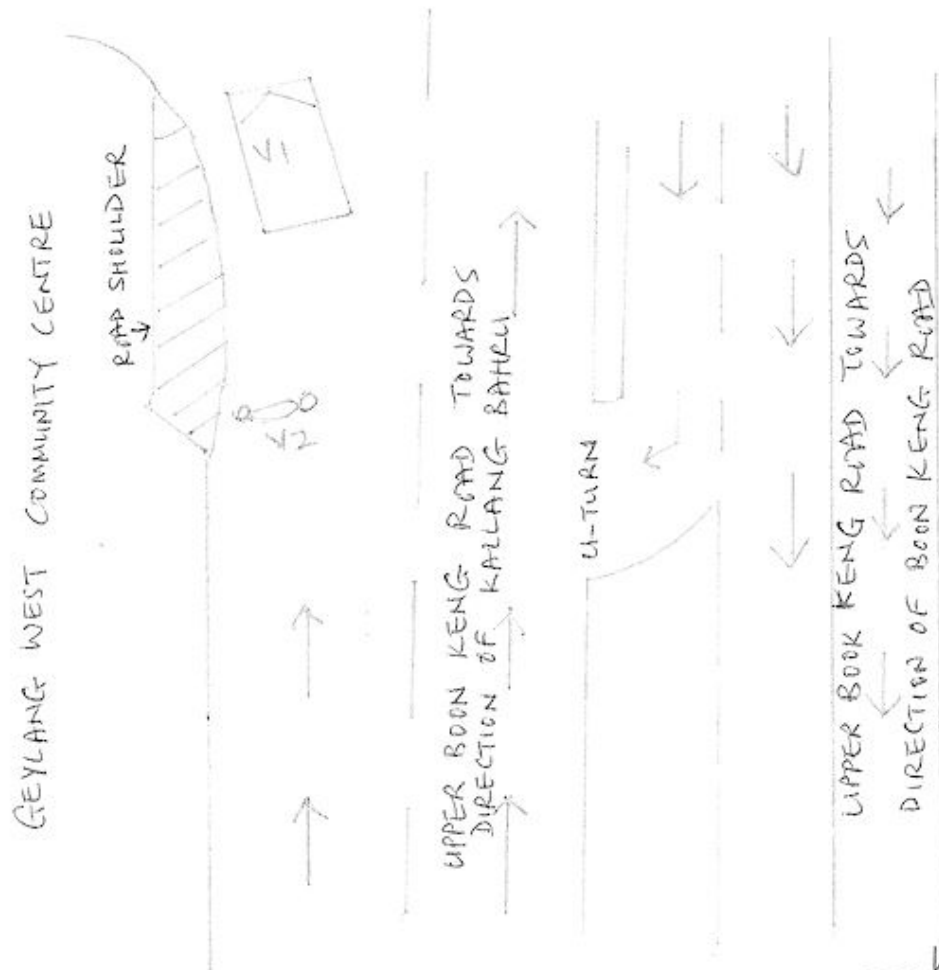 GEYLANG WEST COMMUNITY CENTRE
ROAD SHOULDER
V1
V2
UPPER BOON KENG ROAD TOWARDS
DIRECTION OF KALLANG BAHRU
U-TURN
UPPER BOOK KENG ROAD TOWARDS
DIRECTION OF BOON KENG ROAD